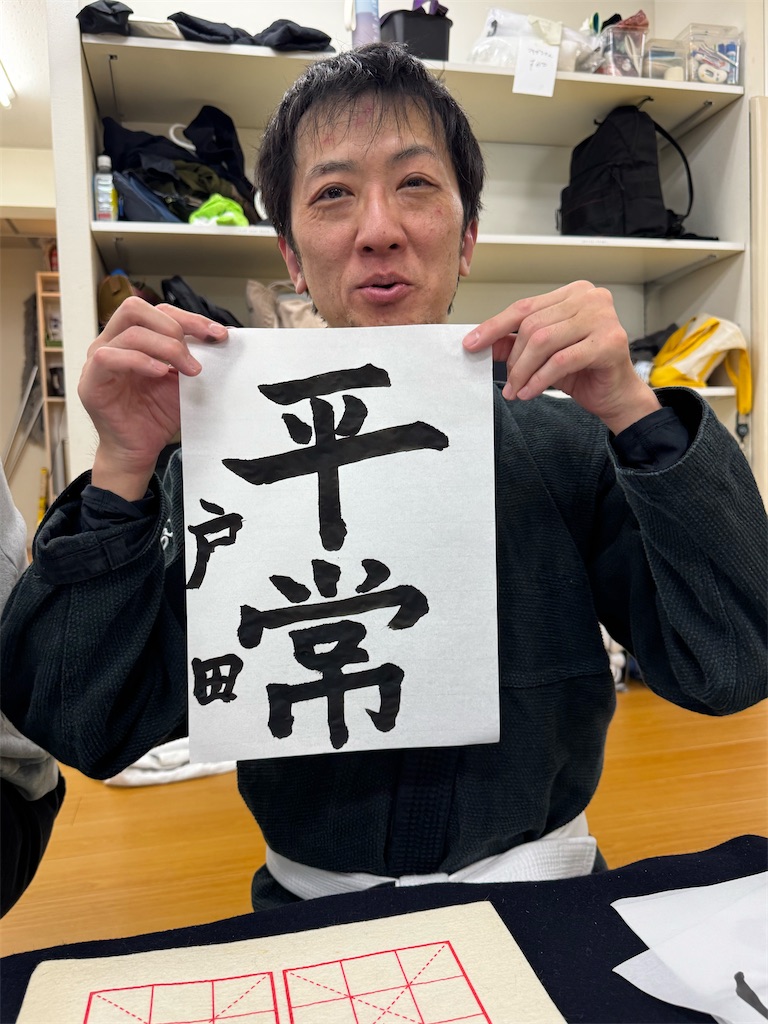 平常
戸田